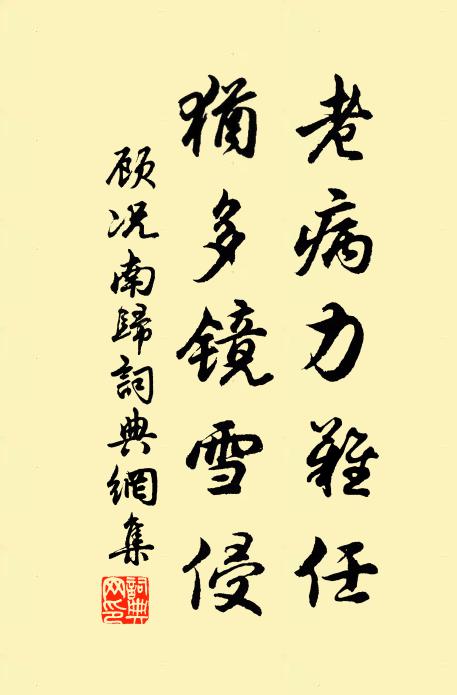 老病力難任
猶多鏡雪侵
顧况南歸詞典網集
詞典网印